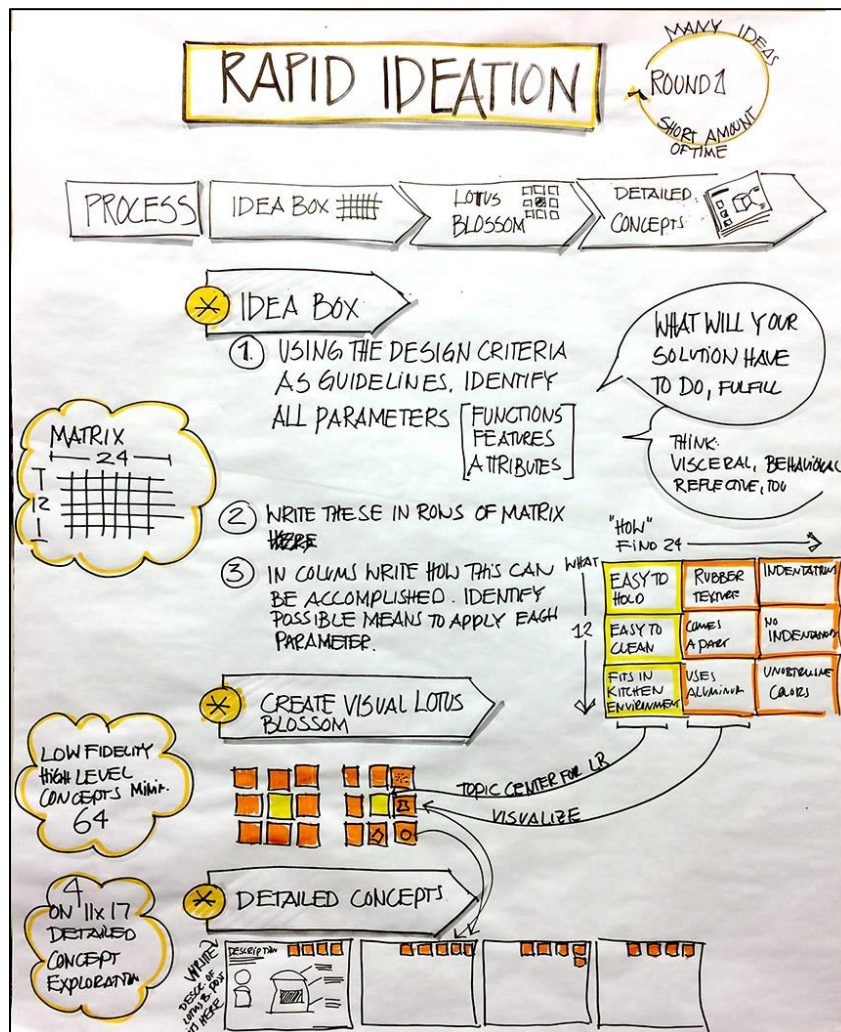 RAPID IDEATION
MANY IDEAS
ROUND 1
SHORT AMOUNT
OF TIME
PROCESS
IDEA BOX
LOTUS
BLOSSOM
DETAILED
CONCEPTS
IDEA BOX
1. USING THE DESIGN CRITERIA
AS GUIDELINES. IDENTIFY
ALL PARAMETERS
FUNCTIONS
FEATURES
ATTRIBUTES
WHAT WILL YOUR
SOLUTION HAVE
TO DO, FULFILL
THINK:
VISCERAL, BEHAVIORAL
REFLECTIVE, TOO
MATRIX
24
12
2 WRITE THESE IN ROWS OF MATRIX
HERE
3 IN COLUMS WRITE HOW THIS CAN
BE ACCOMPLISHED. IDENTIFY
POSSIBLE MEANS TO APPLY EACH
PARAMETER.
"HOW"
FIND 24
WHAT
12
EASY TO
HOLD
RUBBER
TEXTURE
INDENTATIONS
EASY TO
CLEAN
COMES
APART
NO
INDENTATIONS
FITS IN
KITCHEN
ENVIRONMENT
USES
ALUMINUM
COLORS
CREATE VISUAL LOTUS
BLOSSOM
LOW FIDELITY
HIGH LEVEL
CONCEPTS MINIM.
64
TOPIC CENTER FOR LB
VISUALIZE
DETAILED CONCEPTS
4
ON 11x17
DETAILED
CONCEPT
EXPLORATION
WRITE
DESCR. OF
LOTUS B. POST
ITS HERE
DESCRIPTION